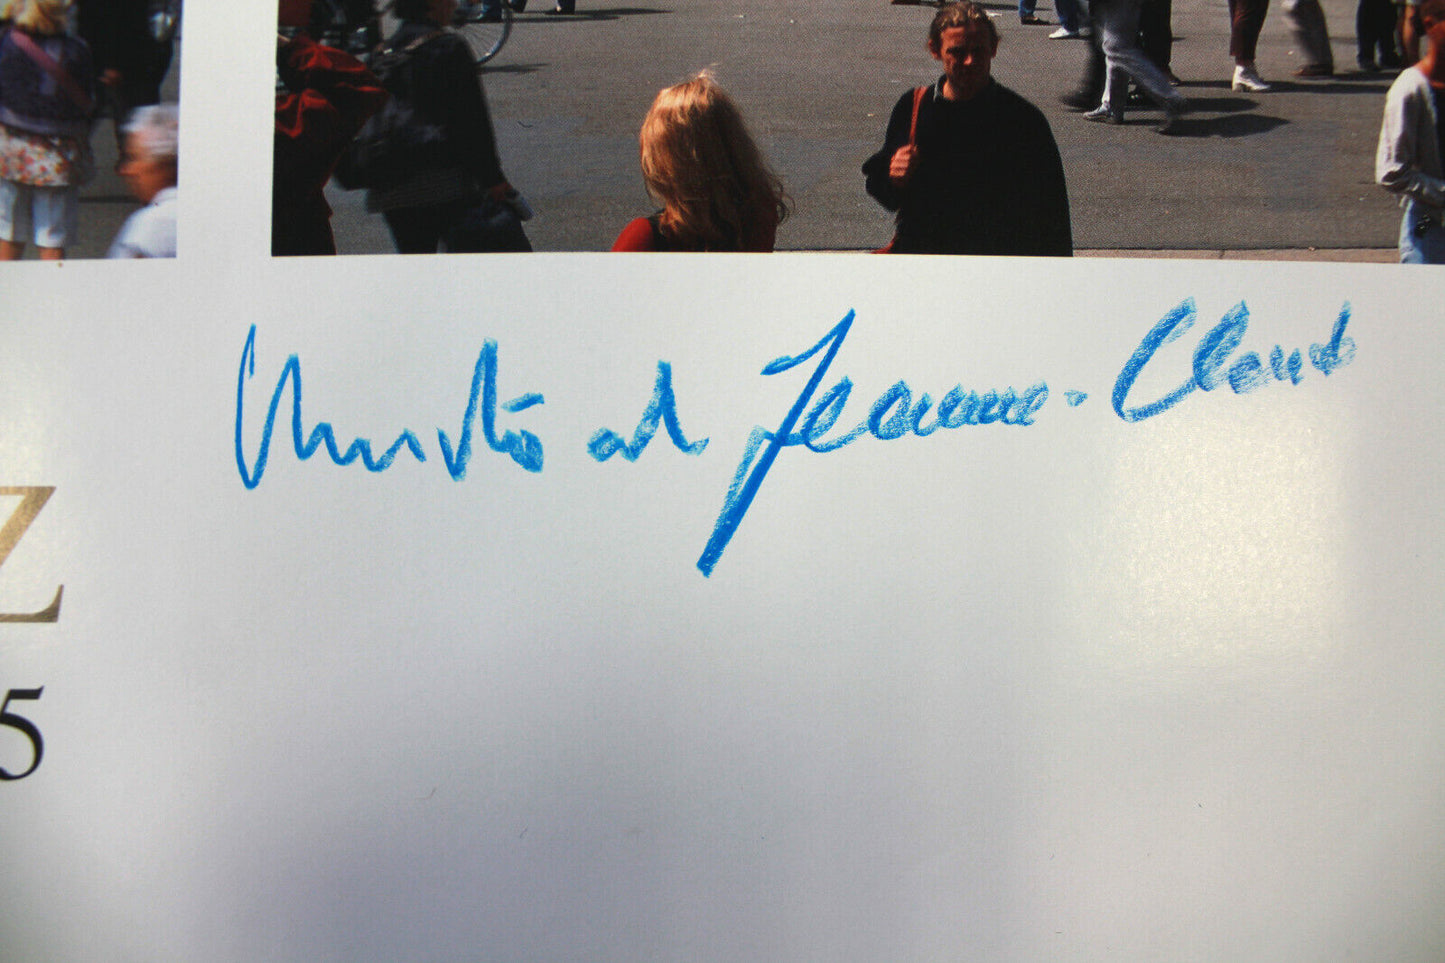 Christo and Jeanne-Claude
Z
5